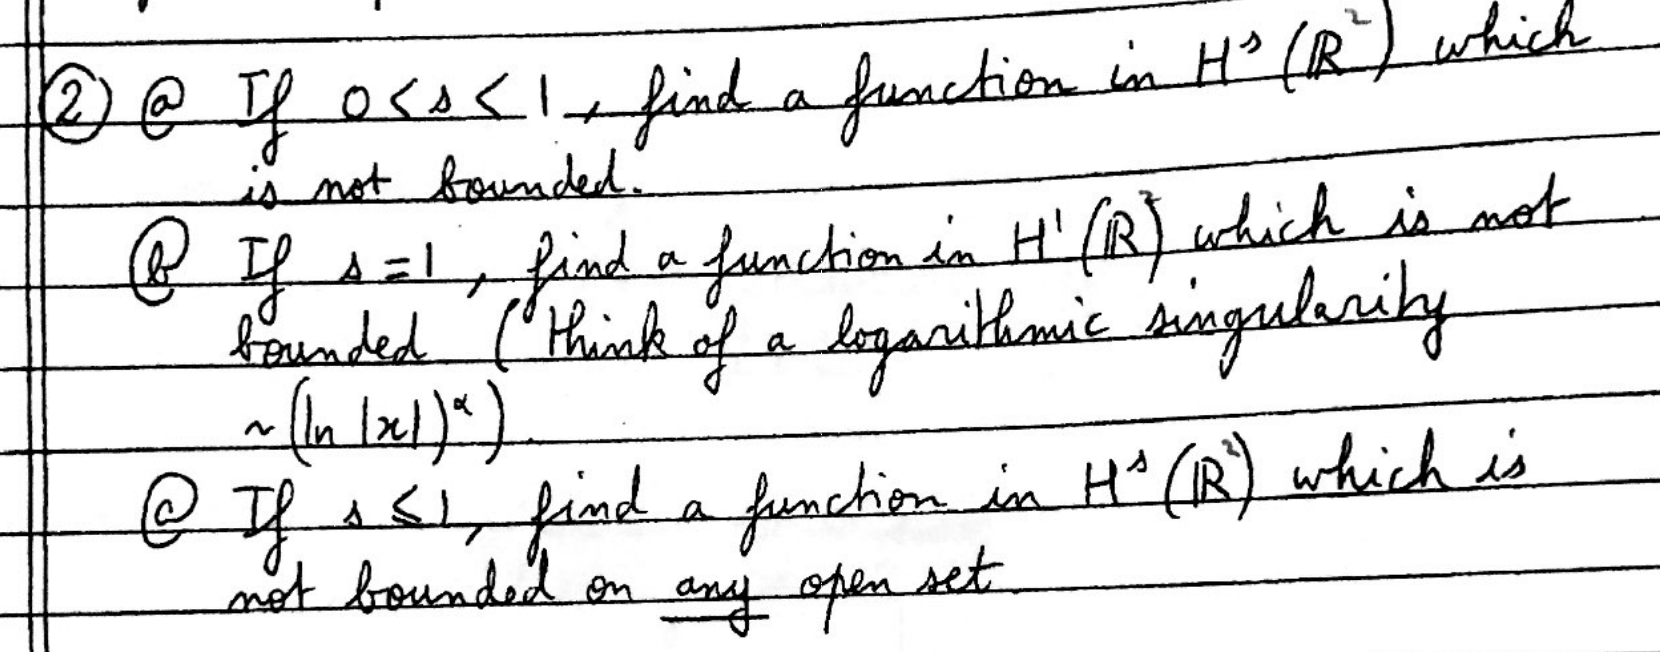 ② ⓐ If 0<s<1, find a function in Hˢ(ℝ²) which
is not bounded.
ⓑ If s=1, find a function in H¹(ℝ²) which is not
bounded (think of a logarithmic singularity
~(ln |x|)^α).
ⓒ If s≤1, find a function in Hˢ(ℝ²) which is
not bounded on any open set.